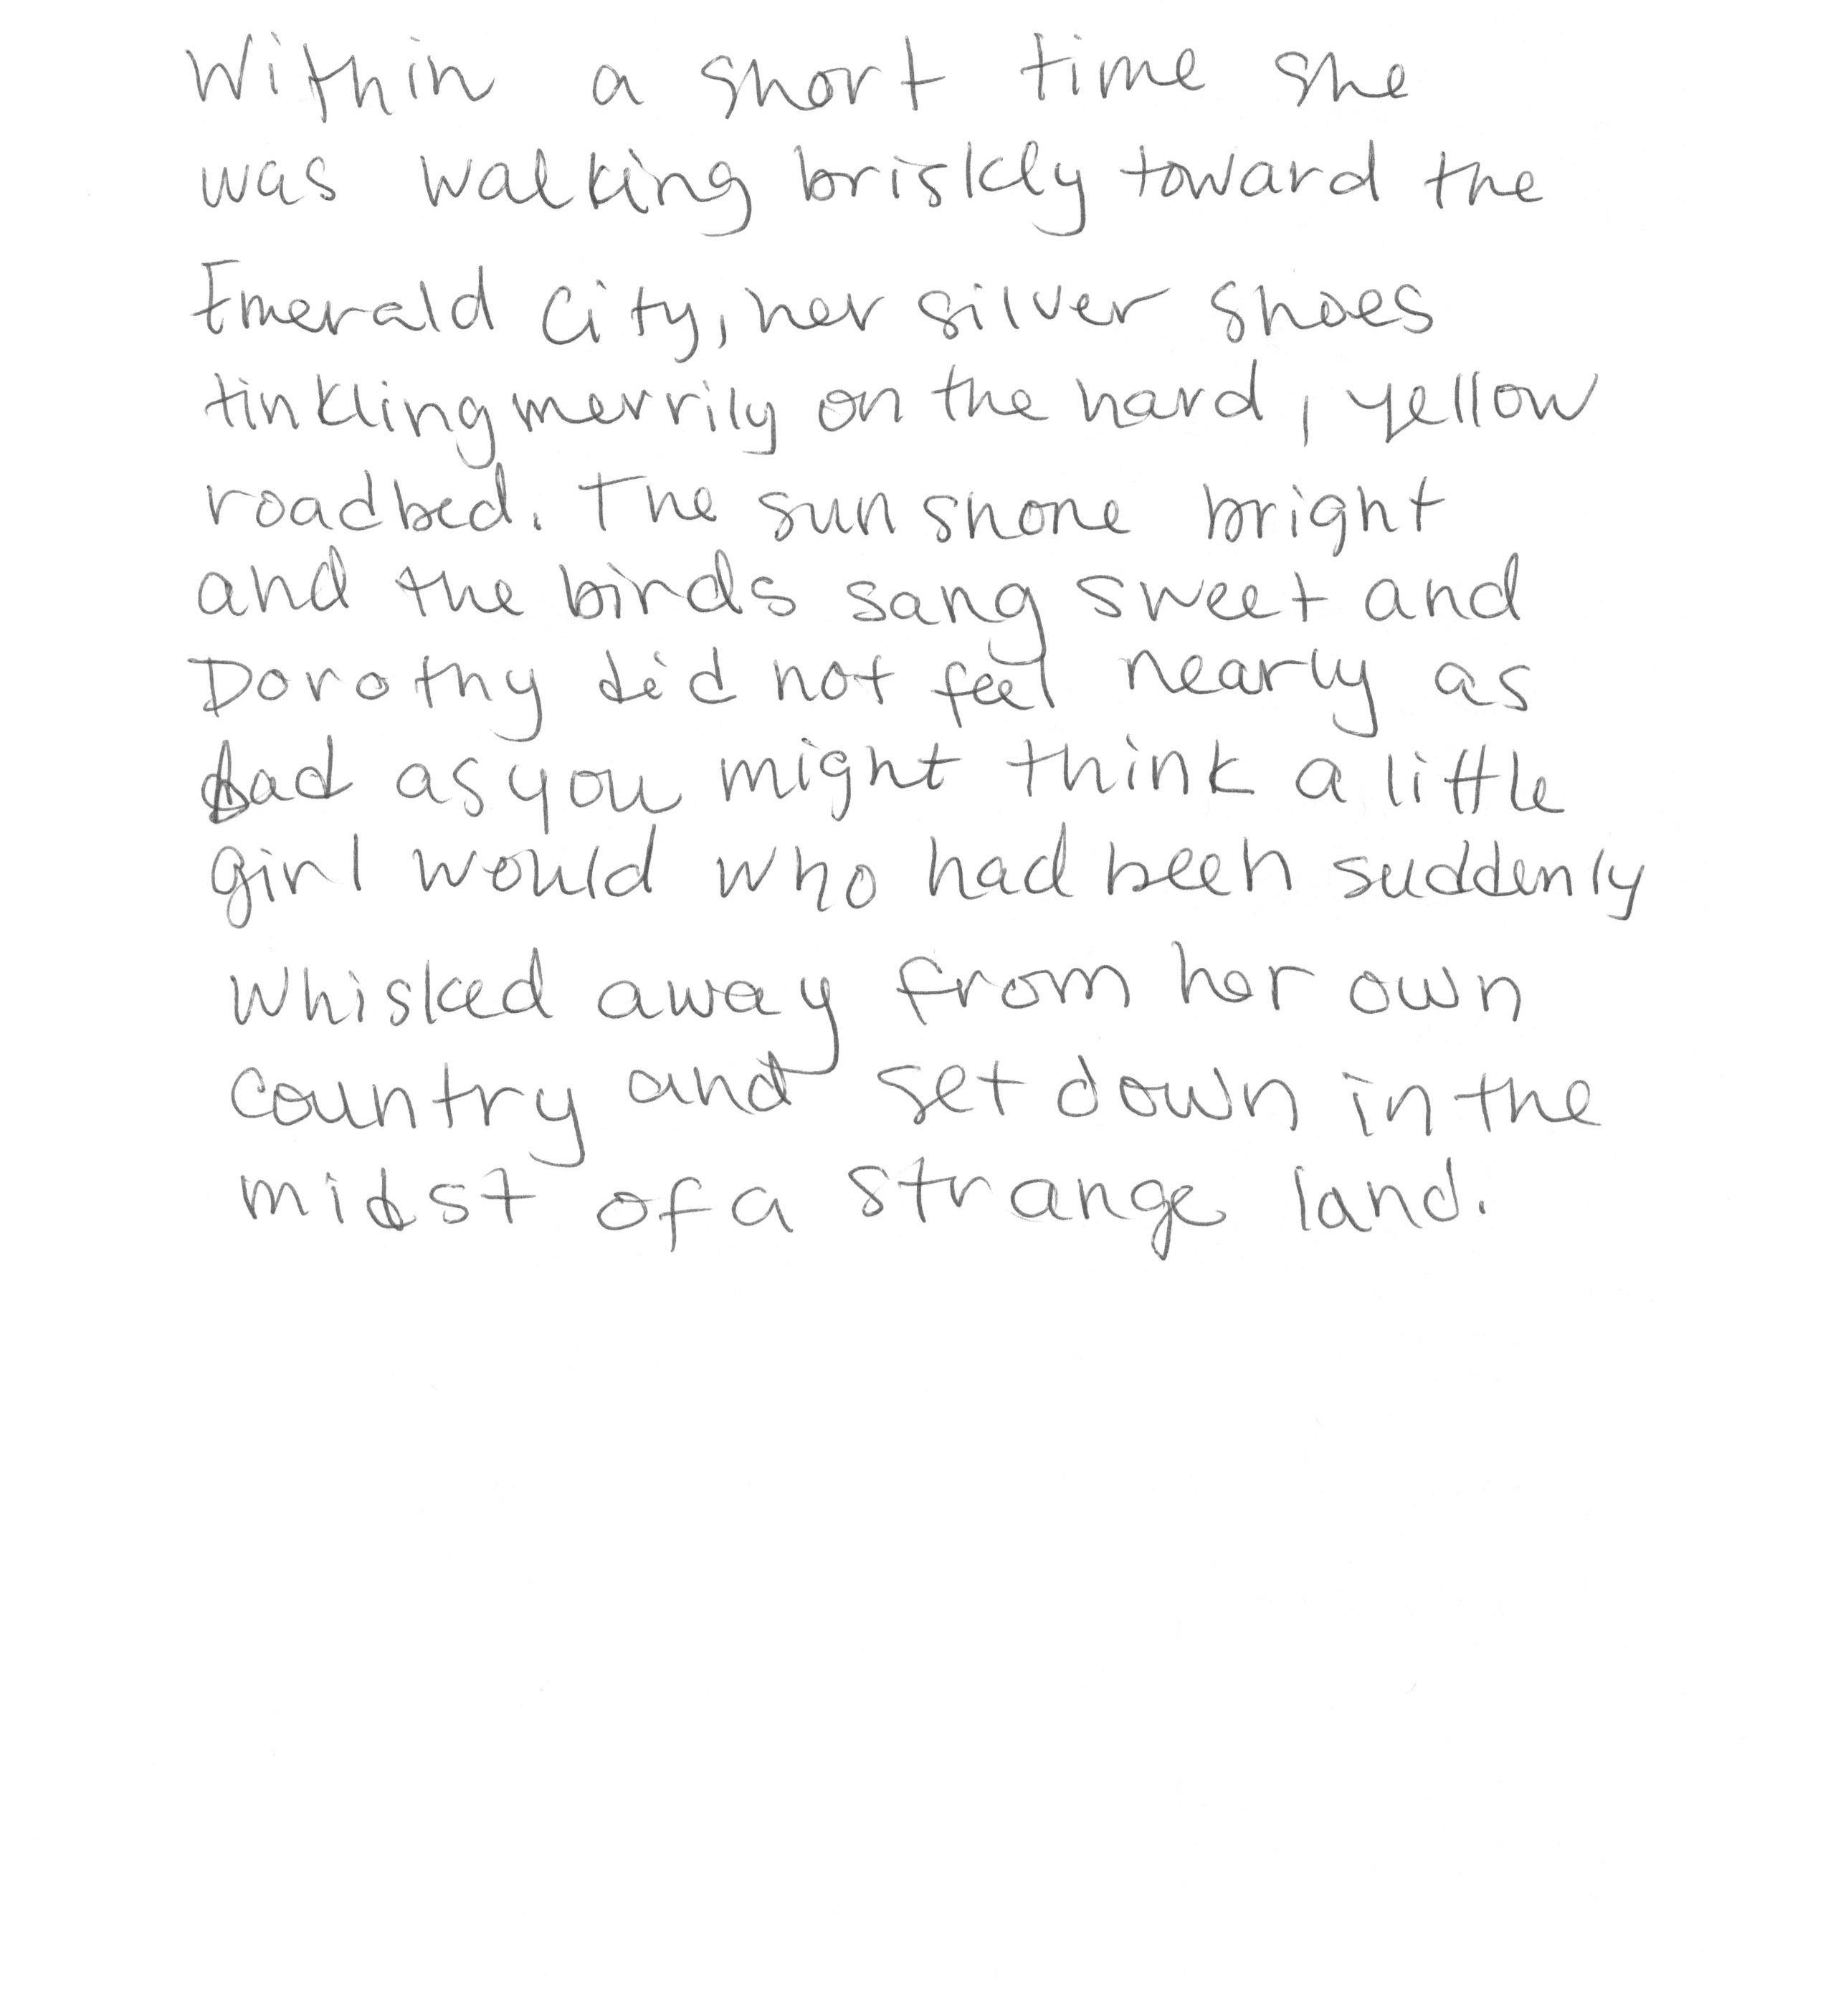 Within a short time she
was walking briskly toward the
Emerald City, her silver shoes
tinkling merrily on the hard, yellow
roadbed. The sun shone bright
and the birds sang sweet and
Dorothy did not feel nearly as
bad as you might think a little
girl would who had been suddenly
whisked away from her own
country and set down in the
midst of a strange land.